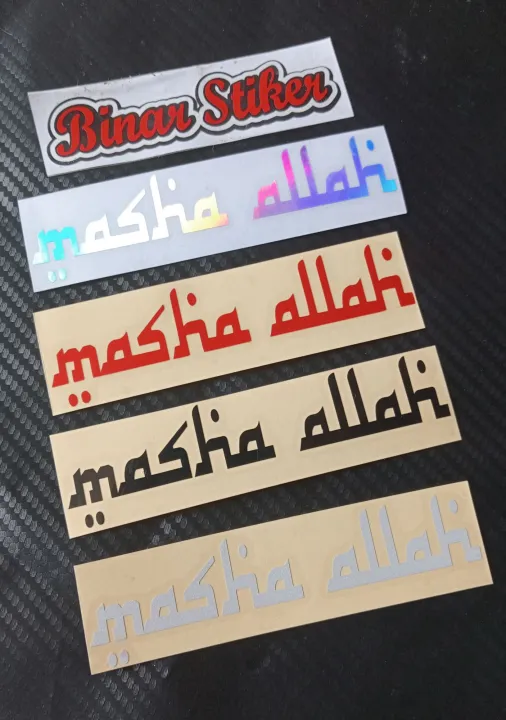 Binar Stiker
masha allah
masha allah
masha allah
masha allah